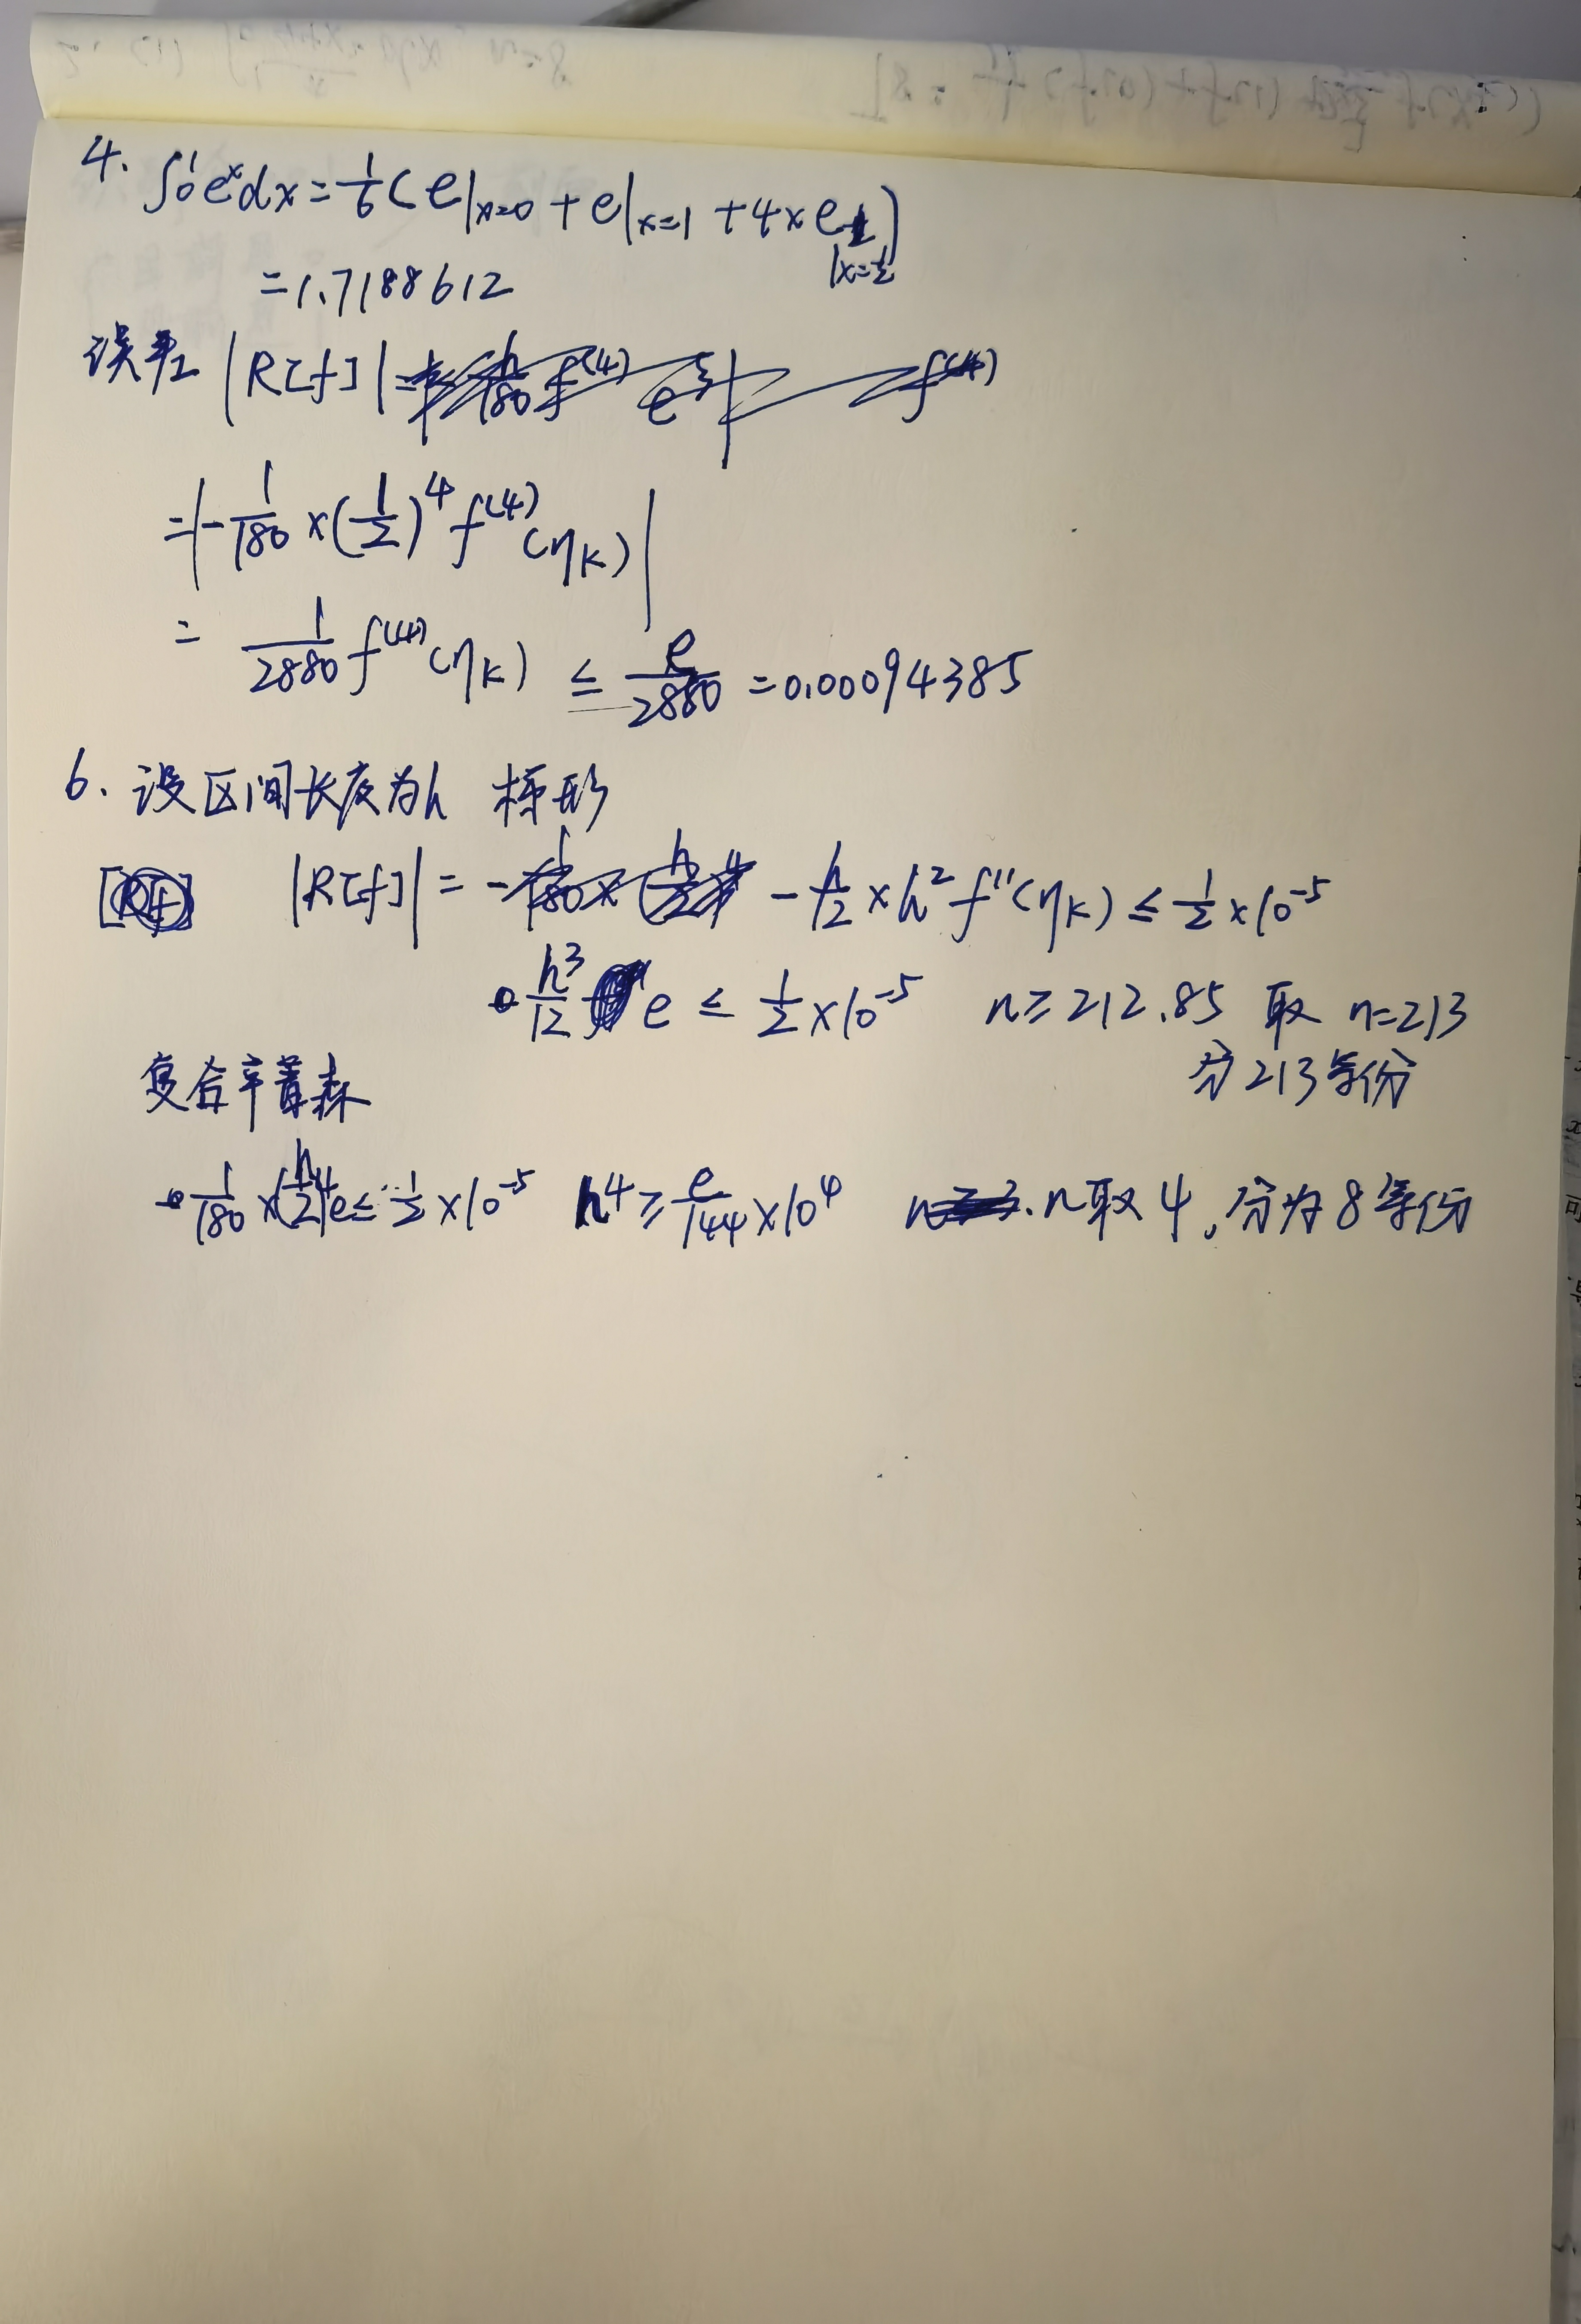 4. ∫₀¹eˣdx=1/6(e|x=0+e|x=1+4×e|x=1/2)
=1.7188612
误差|R[f]|
=|-1/180×(1/2)⁴f⁽⁴⁾(ηk)|
=1/2880f⁽⁴⁾(ηk)≤e/2880=0.00094385
6. 设区间长度为h 梯形
|R[f]|=-h/12×h²f''(ηk)≤1/2×10⁻⁵
h³/12e≤1/2×10⁻⁵ n≥212.85 取 n=213
分213等份
复合辛普森
1/180×(h/2)⁴e≤1/2×10⁻⁵ n⁴≥e/144×10⁴ n取4,分为8等份